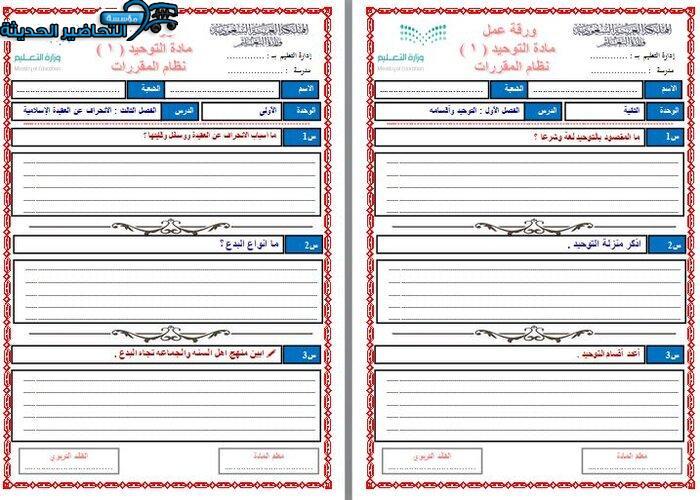 ورقة عمل
مادة التوحيد ( ١ )
نظام المقررات
وزارة التعليم
Ministry of Education
إدارة التعليم بـ : ..............
مدرسة : ..............
الاسم
الشعبة
الوحدة
الثانية
الدرس
الفصل الأول : التوحيد وأقسامه
س1
ما المقصود بالتوحيد لغة وشرعا ؟
س2
اذكر منزلة التوحيد .
س3
أعدد أقسام التوحيد .
معلم المادة
القائد التربوي
مؤسسة
التحاضير الحديثة
مادة التوحيد ( ١ )
نظام المقررات
وزارة التعليم
Ministry of Education
إدارة التعليم بـ : ..............
مدرسة : ..............
الاسم
الشعبة
الوحدة
الأولى
الدرس
الفصل الثالث : الانحراف عن العقيدة الإسلامية
س1
ما أسباب الانحراف عن العقيدة ووسائل وقايتها؟
س2
ما انواع البدع ؟
س3
ابين منهج اهل السنه والجماعه تجاه البدع .
معلم المادة
القائد التربوي